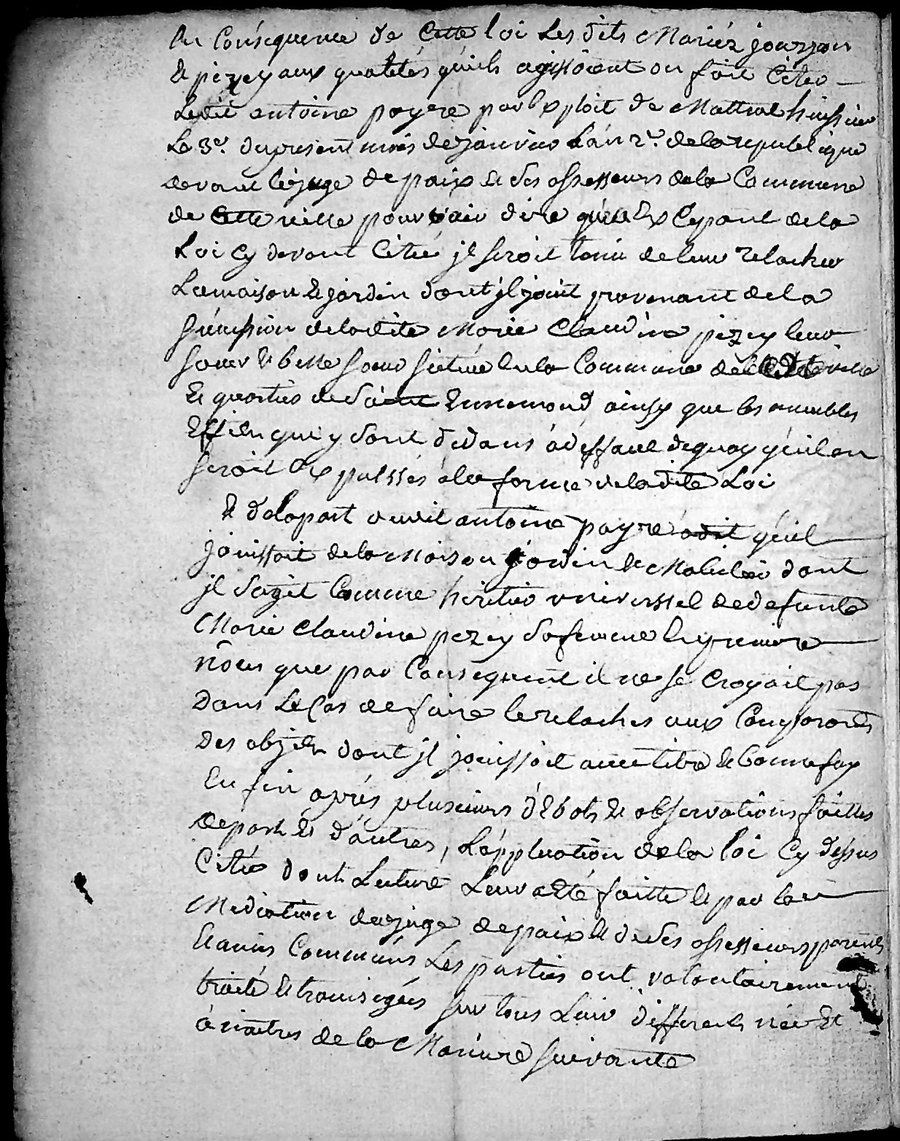 En Consequence de Cette loi Les dits Mariéz jourjon
& pezey aux qualités qu'ils agissoient on fait Citer
Ledit antoine payre par Exploit de Mattrat huissier
Le 3e. du present mois de janvier L'an 2e. de la republique
devant le juge de paix & ses assesseurs de la Commune
de Cette ville pour voir dire qu'en Excepant de la
Loi Cy devant Citée jl seroit tenu de leur relacher
La maison & jardin dont jl jouit provenant de la
succession de la dite Marie Claudine pezey leur
soeur & belle soeur scitué en la Commune de Cette ville
Et quartier de Saint Ennemond ainsy que les meubles
Effets qui y sont dedans à deffaut de quoy qu'il en
seroit Expulssés à la forme de la dite Loi
& de la part dudit antoine payre a dit qu'il
jouissoit de la Maison jardin & Mobilier dont
jl s'agit Comme héritier universsel de defunte
Marie Claudine pezey sa femme En premiere
nôces que par Consequent il ne se Croyait pas
Dans Le Cas de faire le relaches aux Comparants
Des objets dont jl jouissoit a titre & bonne foy
En fin après plusieurs débats & observations faittes
de part & d'autres, L'appliation de la loi Cy dessus
Citée dont Lecture Leur a été faitte & par la
Mediation du juge de paix & de ses assesseurs parents
& amis Communs Les parties ont volontairement
traité & transigées sur tous Leur differents née Et
à naitres de la Maniere suivante